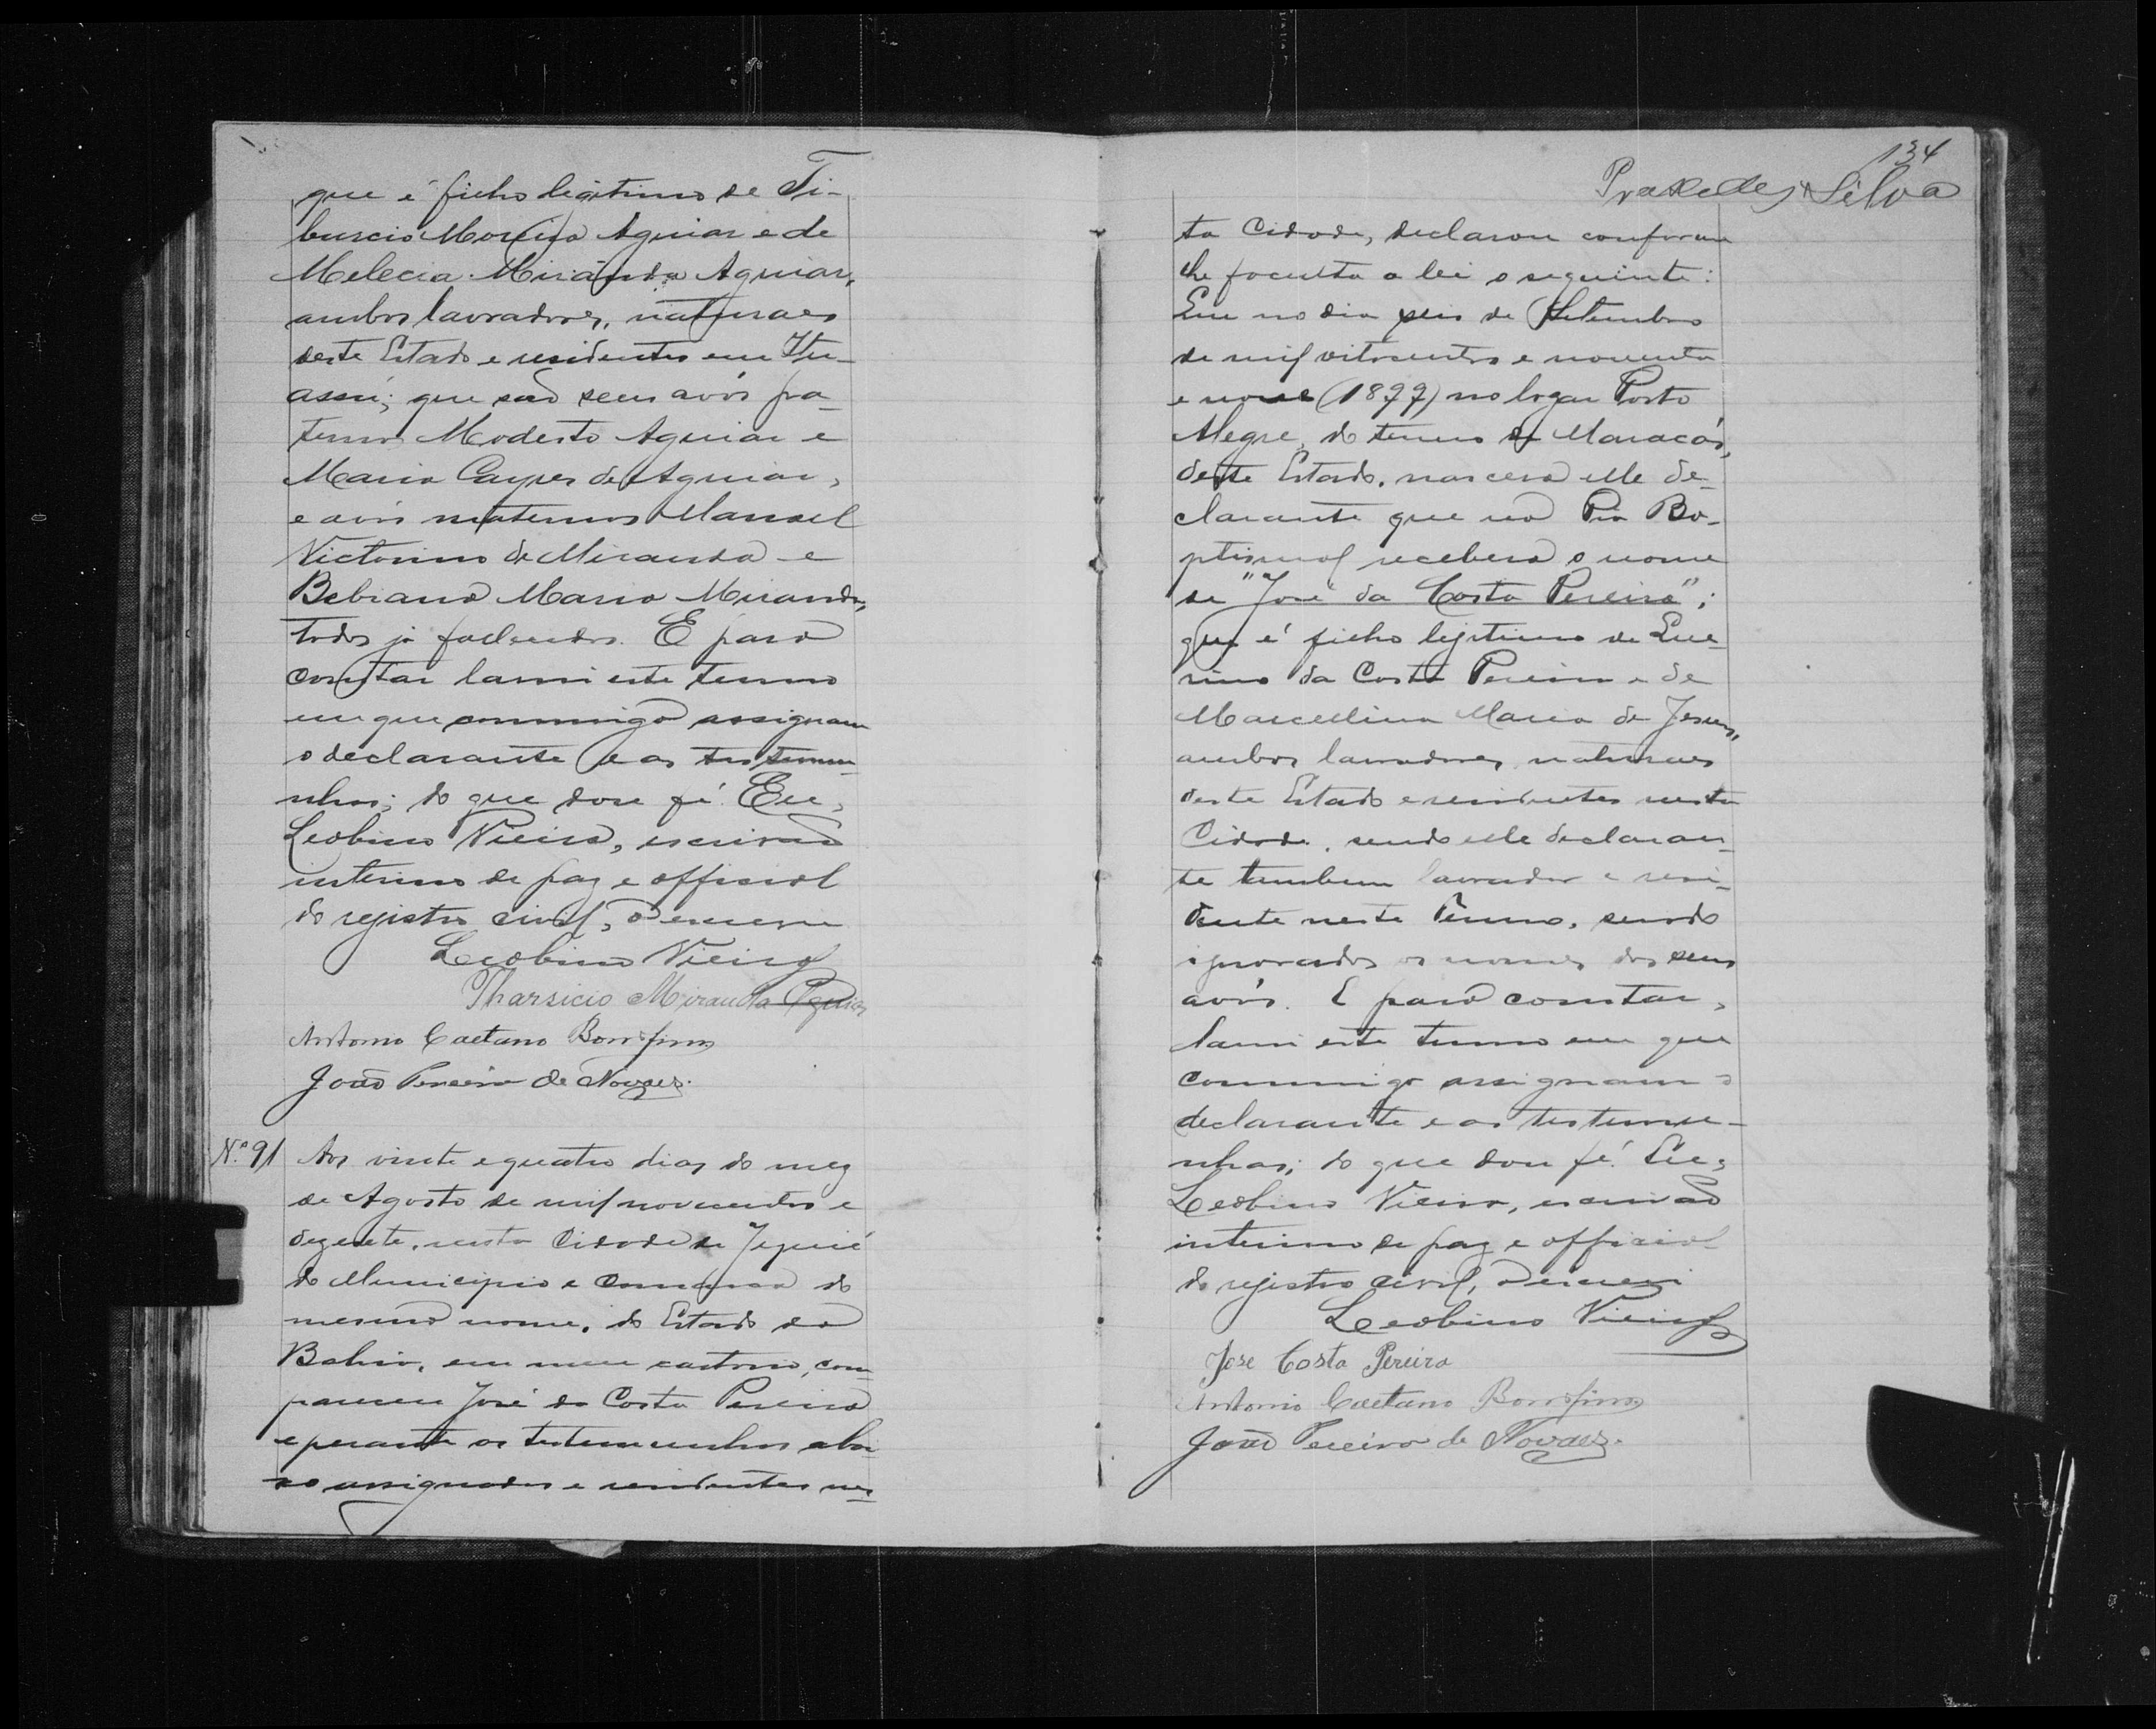 que é filho legitimo de Ti-
burcio Moreira Aguiar e de
Melecia Miranda Aguiar,
ambos lavradores, naturaes
deste Estado e residentes em Itu-
assú; que são seus avós pa-
ternos Modesto Aguiar e
Maria Cayres de Aguiar,
e avós maternos Manoel
Victorino de Miranda e
Bebiana Maria Miranda,
todos já fallecidos. E para
constar lavrei este termo
em que commigo assignam
o declarante e as testemu-
nhas; do que dou fé. Eu,
Leobino Vieira, escrivão
interino de paz e official
do registro civil, o escrevi
Leobino Vieira
Tharsicio Miranda Aguiar
Antonio Caetano Bomfim
João Pereira de Novaes.
N.º 91 Aos vinte e quatro dias do mez
de Agosto de mil novecentos e
dezesete, nesta Cidade de Jequié
do Municipio e Comarca do
mesmo nome, do Estado da
Bahia, em meu cartorio, com-
pareceu José da Costa Pereira
e perante as testemunhas abai-
xo assignadas e residentes nes-
134
Praxedes Silva
ta Cidade, declarou conforme
lhe faculta a lei o seguinte:
Que no dia seis de Setembro
de mil oitocentos e noventa
e nove (1899) no logar Porto
Alegre, do termo de Maracás,
deste Estado, nascera elle de-
clarante que na Pia Ba-
ptismal recebera o nome
de "José da Costa Pereira";
que é filho legitimo de
da Costa Pereira e de
Marcellina Maria de Jesus,
ambos lavradores, naturaes
deste Estado e residentes nesta
Cidade, sendo elle declaran-
te tambem lavrador e resi-
dente neste Termo, sendo
ignorados os nomes dos seus
avós. E para constar,
lavrei este termo em que
commigo assignam o
declarante e as testemu-
nhas; do que dou fé. Eu,
Leobino Vieira, escrivão
interino de paz e official
do registro civil, o escrevi
Leobino Vieira
Jose Costa Pereira
Antonio Caetano Bomfim
João Pereira de Novaes.